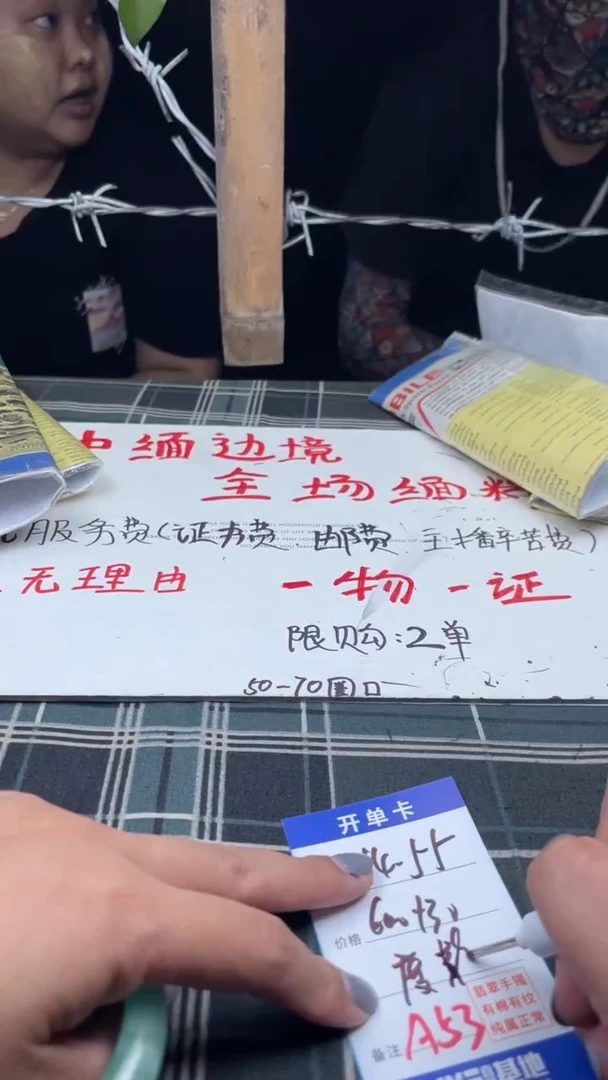 中缅边境
全场缅料
服务费(证书费 邮费 主播辛苦费)
无理由 一物一证
限购:2单
50-70圈口
BILE
开单卡
14-55
价格 600+30
A53
备注
翡翠手镯
有棉有纹
纯属正常
基地